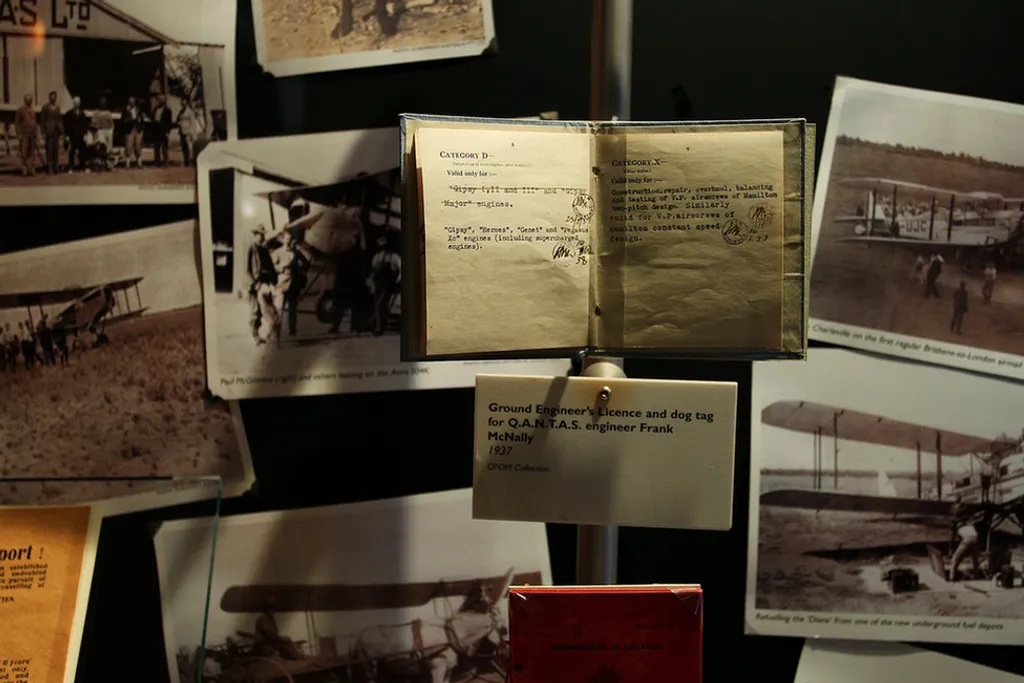 A.S LTD
CATEGORY D—
Valid only for:—
"Gipsy I,II and III" and "Gipsy
Major" engines.
"Gipsy", "Hermes", "Genet" and "Pegasus
Xc" engines (including supercharged
engines).
38
CATEGORY X—
Valid only for:—
Construction, repair, overhaul, balancing
and testing of V.P. airscrews of Hamilton
two-pitch design. Similarly
valid for V.P. airscrews of
Hamilton constant speed
design.
Ground Engineer's Licence and dog tag
for Q.A.N.T.A.S. engineer Frank
McNally
1937
QFOM Collection
Paul McGinness (right) and others leaning on the Avro 504K
-UJC
Charleville on the first regular Brisbane-to-London airmail
Refuelling the 'Diana' from one of the new underground fuel depots
port !
established
undoubted
pursuit of
travelling at
6 years'
st only.
and